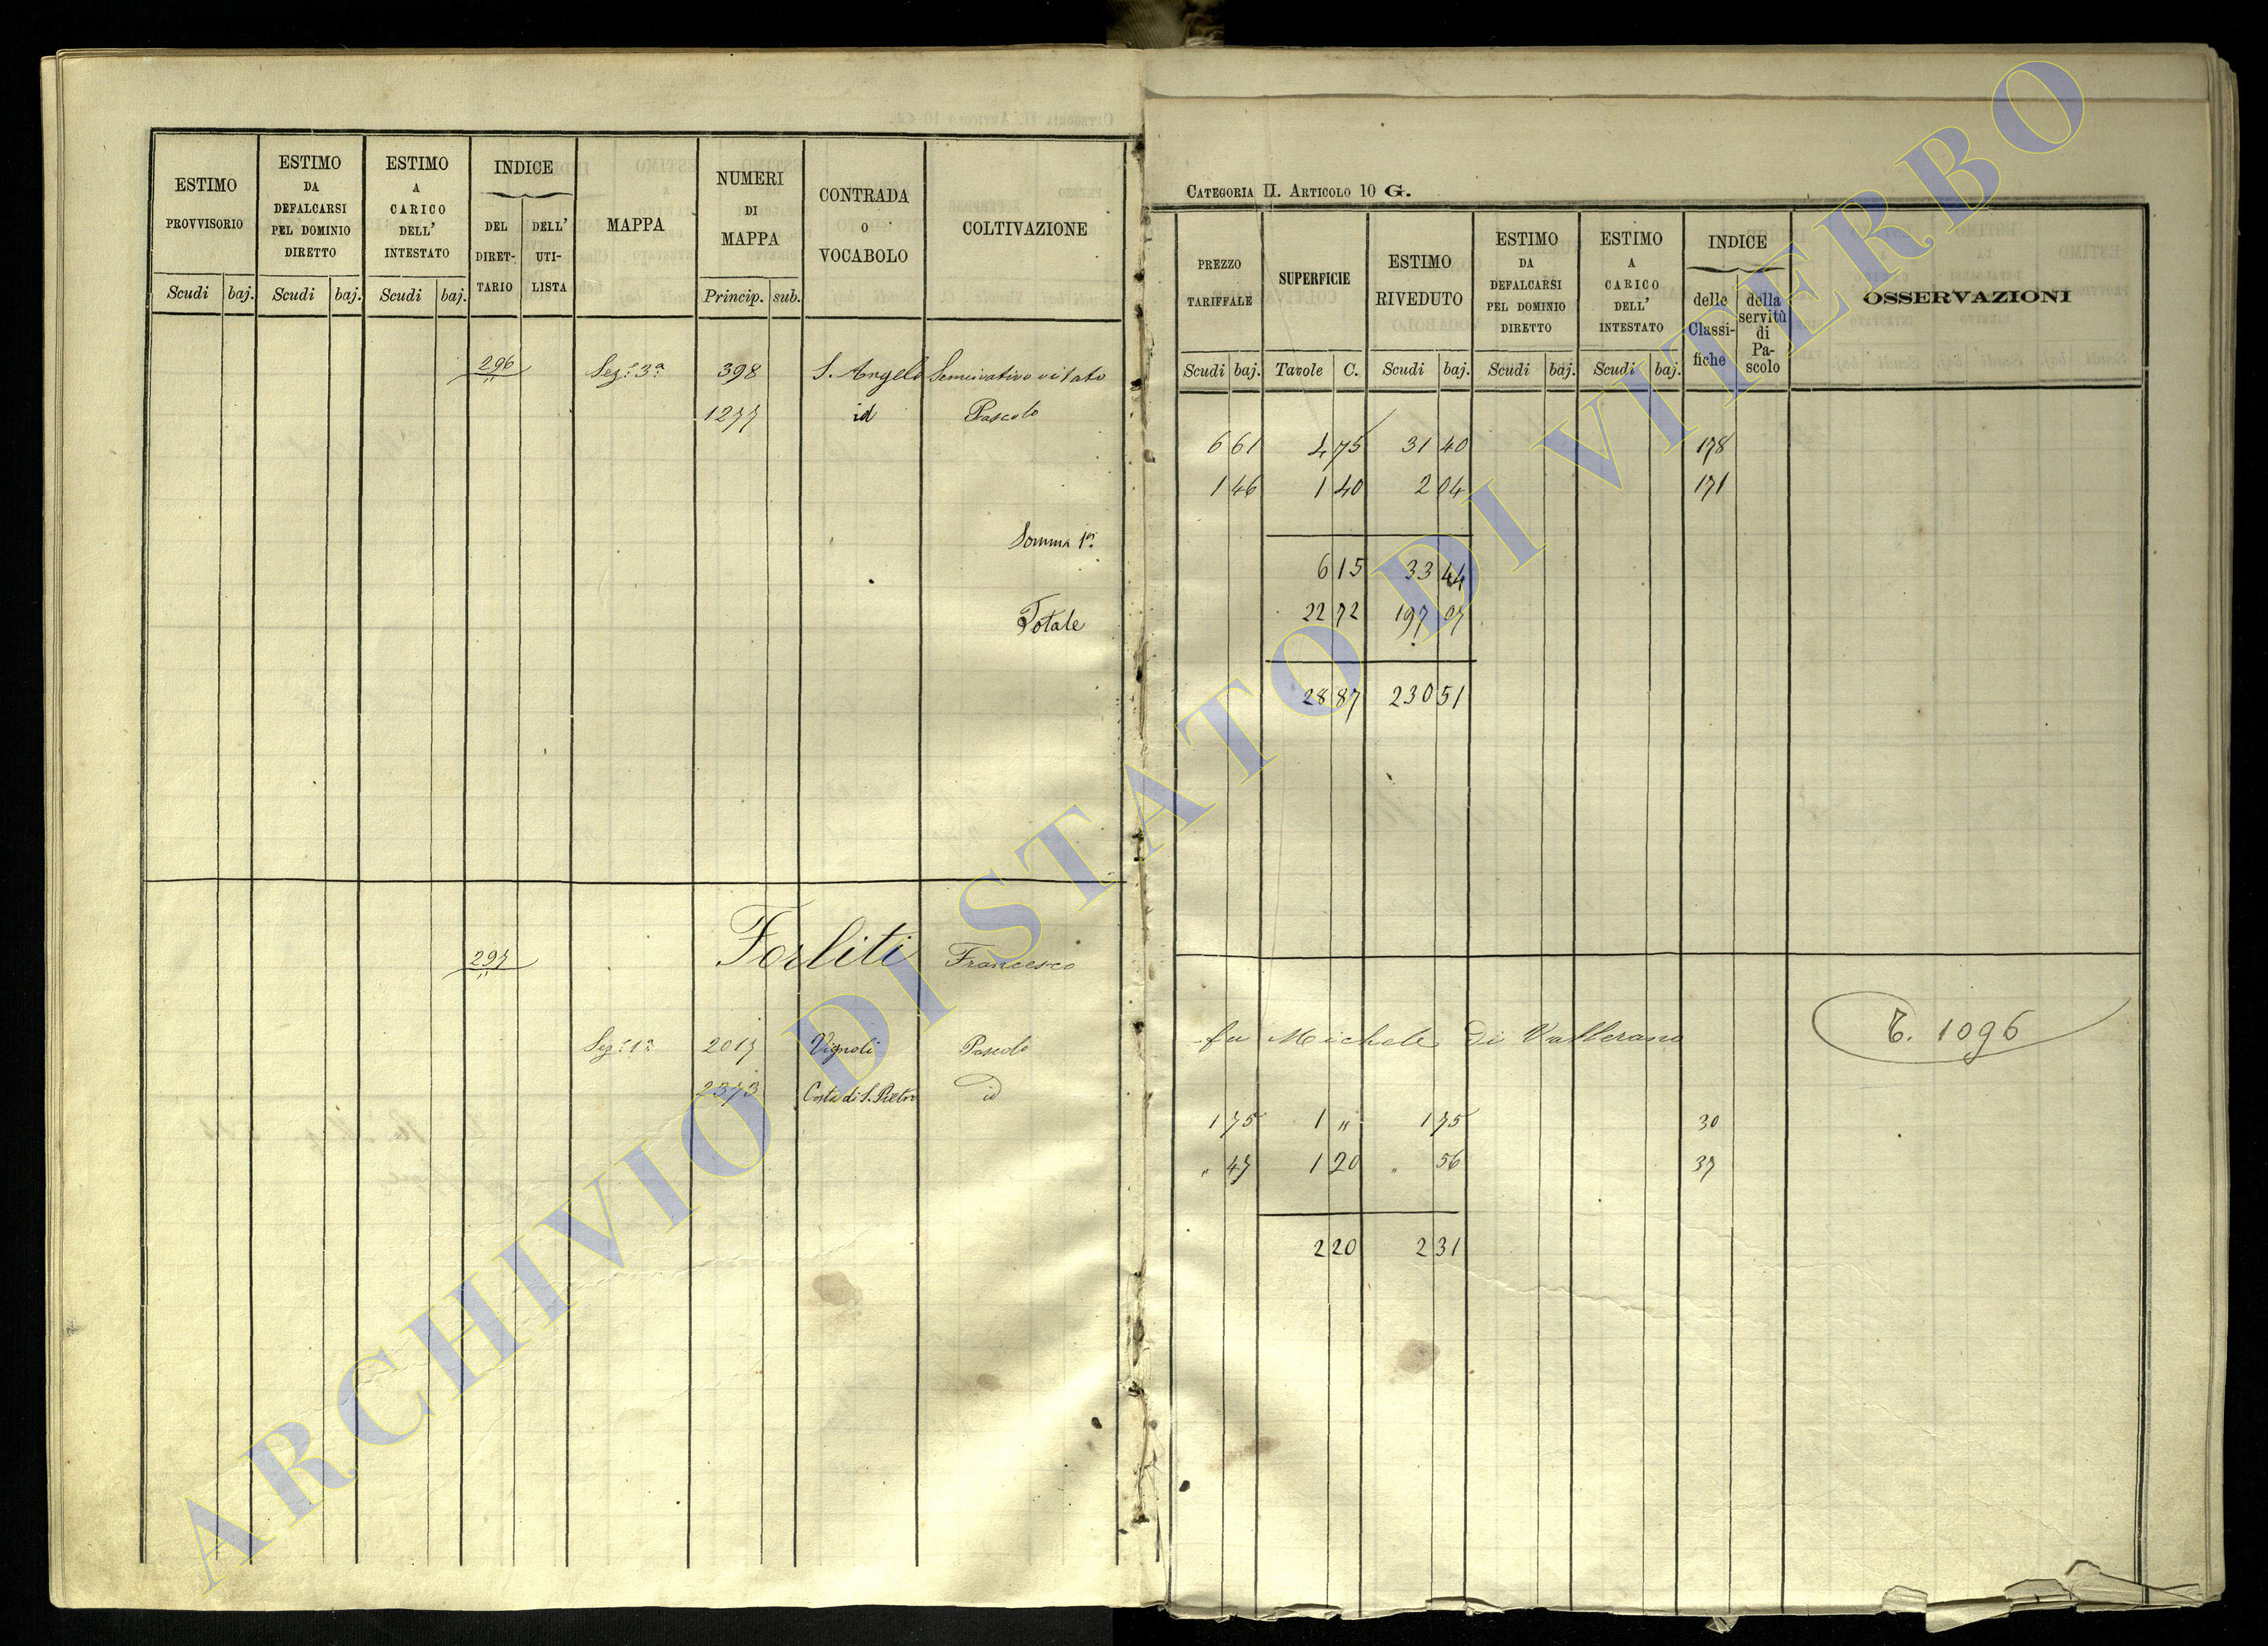 ESTIMO PROVVISORIO Scudi baj.
ESTIMO DA DEFALCARSI PEL DOMINIO DIRETTO Scudi baj.
ESTIMO A CARICO DELL' INTESTATO Scudi baj.
INDICE DEL DIRETTARIO DELL' UTILISTA
MAPPA
NUMERI DI MAPPA Princip. sub.
CONTRADA O VOCABOLO
COLTIVAZIONE
296 Sez.e 3a 398 S. Angelo Seminativo vitato
1277 id Pascolo
Somma 1a
Totale
297 Forliti Francesco
Sez.e 1a 2017 Vignoli Pascolo
2373 Costa di S. Pietro id
CATEGORIA II. ARTICOLO 10 G.
PREZZO TARIFFALE Scudi baj.
SUPERFICIE Tavole C.
ESTIMO RIVEDUTO Scudi baj.
ESTIMO DA DEFALCARSI PEL DOMINIO DIRETTO Scudi baj.
ESTIMO A CARICO DELL' INTESTATO Scudi baj.
INDICE delle Classifiche della servitù di Pascolo
OSSERVAZIONI
6 61 4 75 31 40 178
1 46 1 40 2 04 171
6 15 33 44
22 72 197 07
28 87 230 51
fu Michele di Vallerano T. 1096
1 75 1 " 1 75 30
" 47 1 20 " 56 37
2 20 2 31
ARCHIVIO DI STATO DI VITERBO